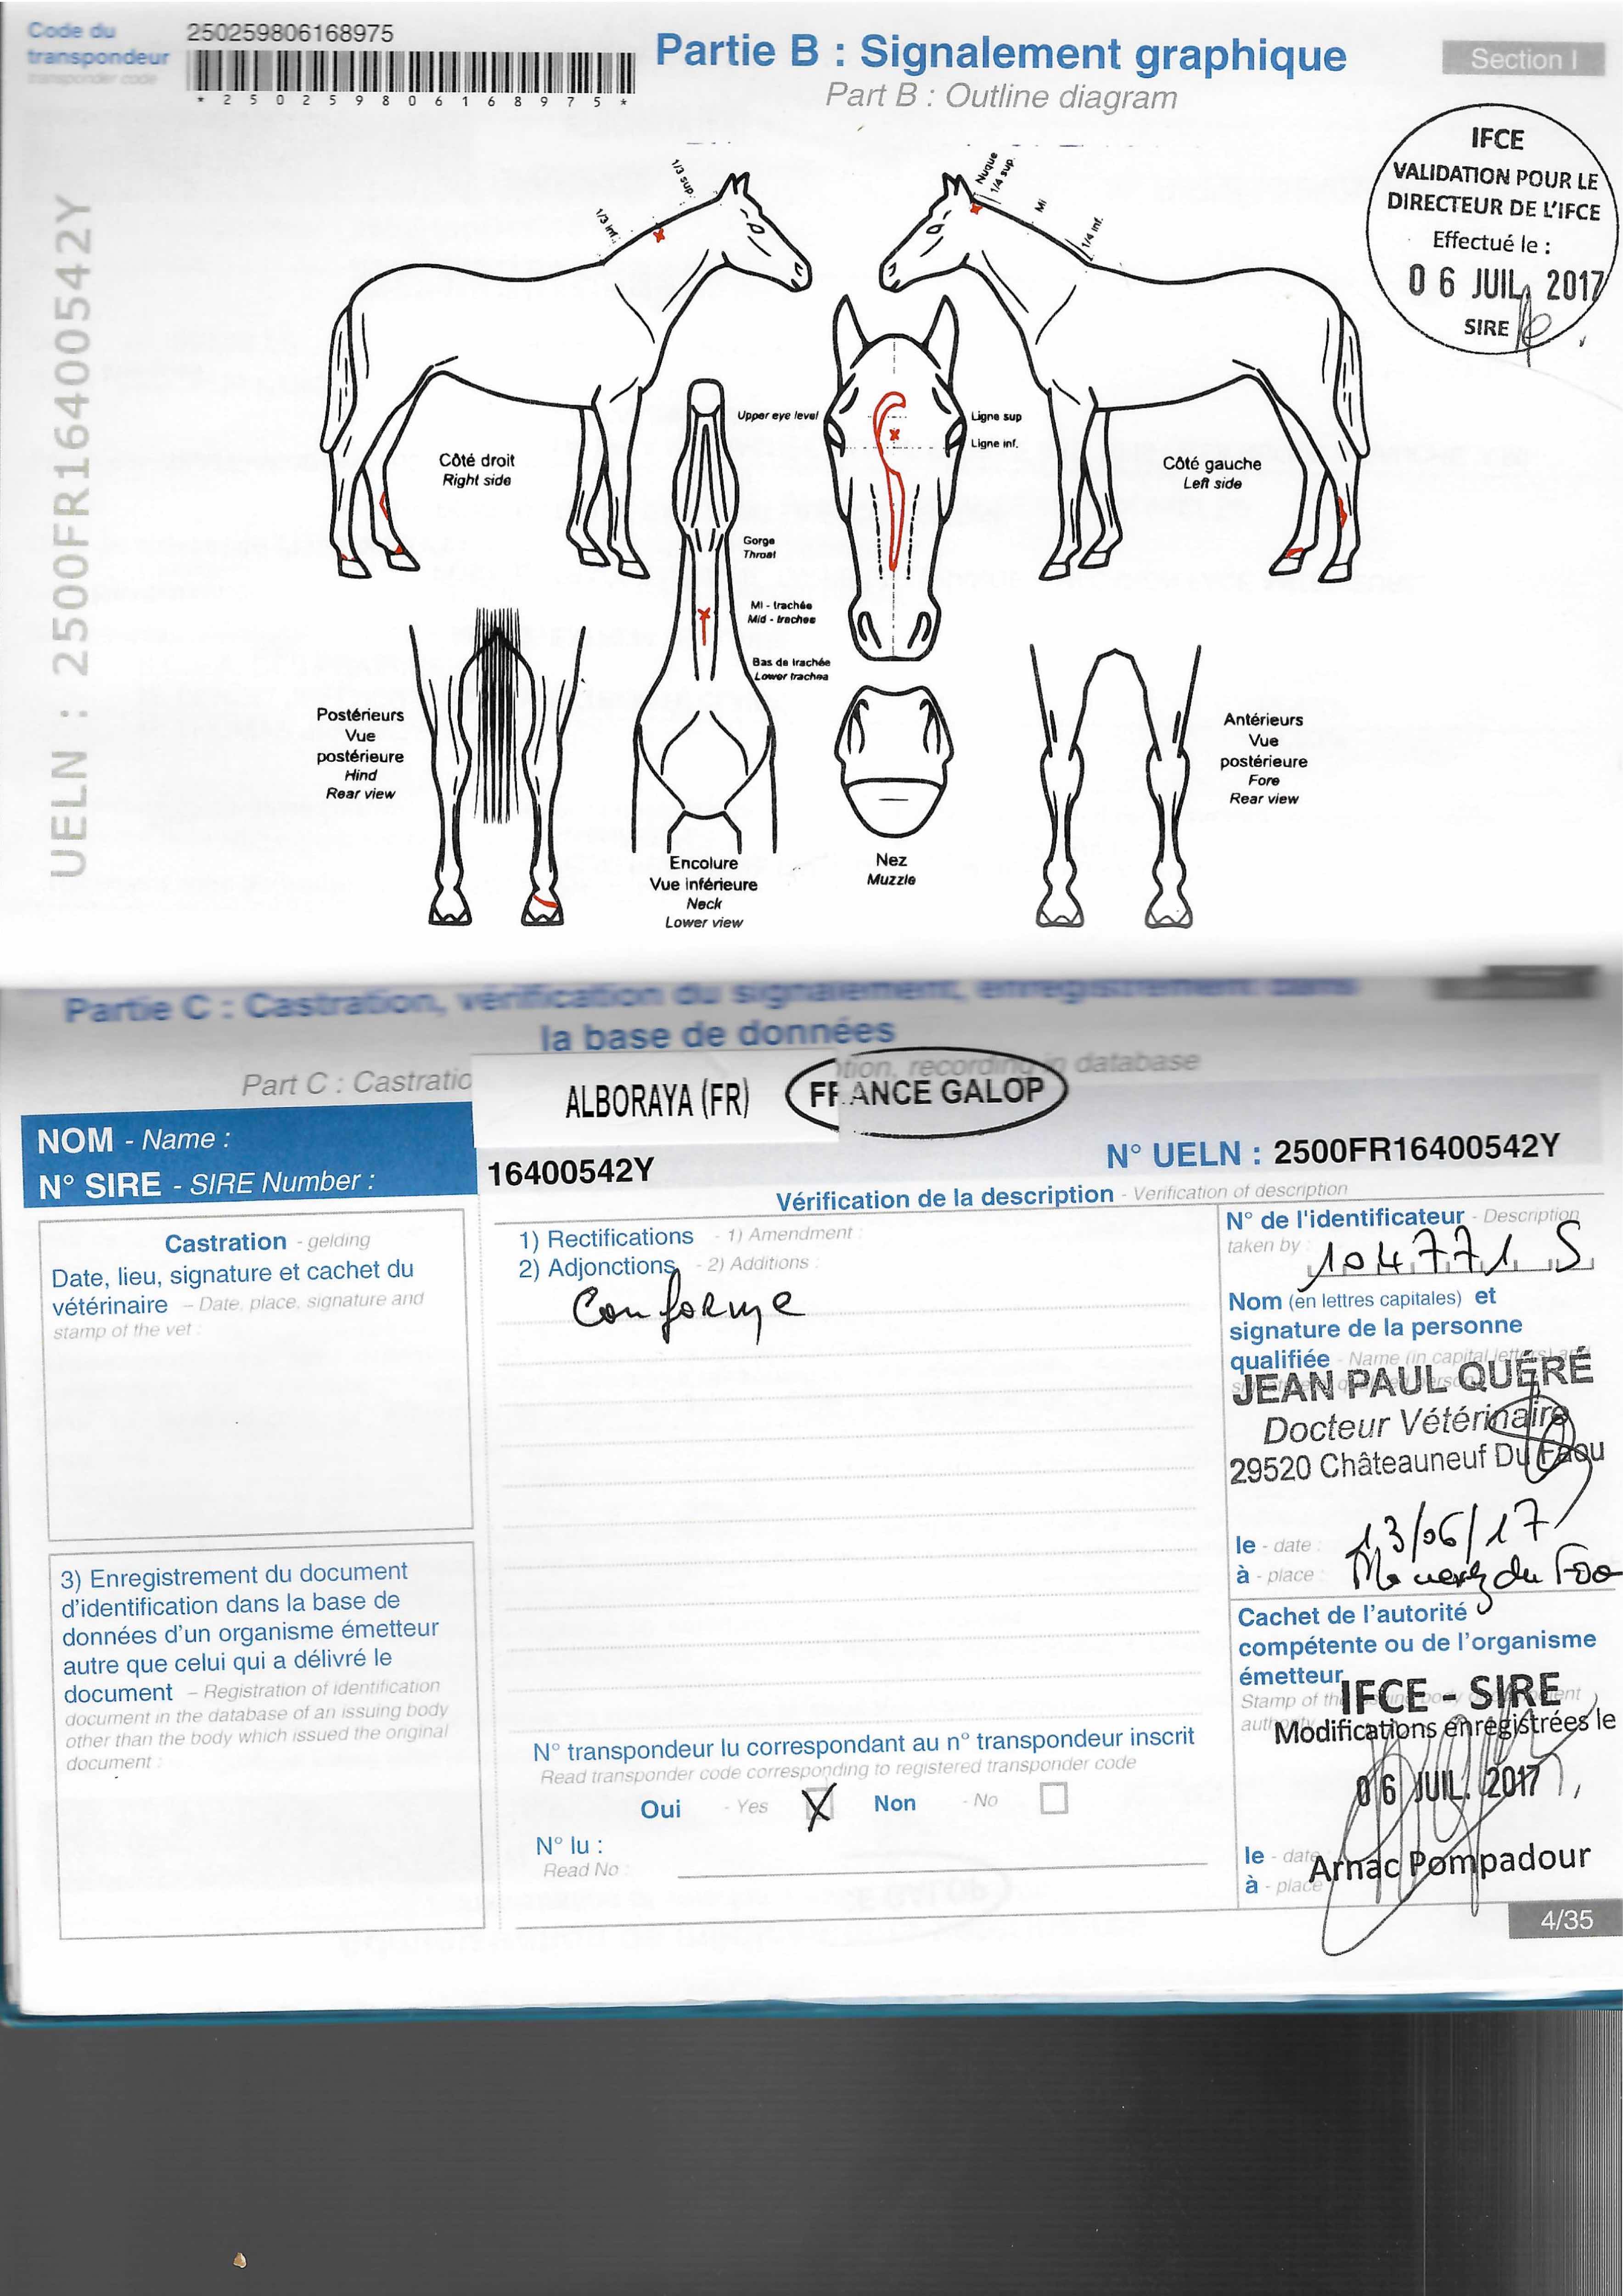 Code du
transpondeur
transponder code
250259806168975
* 2 5 0 2 5 9 8 0 6 1 6 8 9 7 5 *
Partie B : Signalement graphique
Part B : Outline diagram
Section I
IFCE
VALIDATION POUR LE
DIRECTEUR DE L'IFCE
Effectué le :
0 6 JUIL. 2017
SIRE
UELN : 2500FR16400542Y
1/3 sup.
1/3 inf.
Nuque
1/4 sup.
Mi
1/4 inf.
Côté droit
Right side
Upper eye level
Ligne sup
Ligne inf.
Côté gauche
Left side
Gorge
Throat
Mi - trachée
Mid - trachea
Bas de trachée
Lower trachea
Postérieurs
Vue
postérieure
Hind
Rear view
Antérieurs
Vue
postérieure
Fore
Rear view
Encolure
Vue inférieure
Neck
Lower view
Nez
Muzzle
Partie C : Castration, vérification du signalement, enregistrement dans
la base de données
Part C : Castratio
tion, recording in database
ALBORAYA (FR)
FRANCE GALOP
NOM - Name :
N° SIRE - SIRE Number :
16400542Y
N° UELN : 2500FR16400542Y
Vérification de la description - Verification of description
Castration - gelding
Date, lieu, signature et cachet du
vétérinaire – Date, place, signature and
stamp of the vet :
1) Rectifications - 1) Amendment :
2) Adjonctions - 2) Additions :
Conforme
N° de l'identificateur - Description
taken by :
104771 S
Nom (en lettres capitales) et
signature de la personne
qualifiée - Name (in capital letters) and
JEAN PAUL QUÉRÉ
Docteur Vétérinaire
29520 Châteauneuf Du Faou
le - date :
13/06/17
à - place :
du
3) Enregistrement du document
d'identification dans la base de
données d'un organisme émetteur
autre que celui qui a délivré le
document – Registration of identification
document in the database of an issuing body
other than the body which issued the original
document :
Cachet de l'autorité
compétente ou de l'organisme
émetteur
Stamp of the
IFCE - SIRE
Modifications enregistrées le
0 6 JUIL. 2017
N° transpondeur lu correspondant au n° transpondeur inscrit
Read transponder code corresponding to registered transponder code
Oui - Yes
Non - No
N° lu :
Read No :
le - date
à - place
Arnac Pompadour
4/35